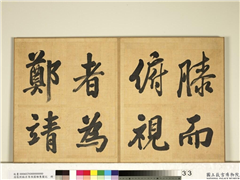 膝而
俯視
者為
鄭靖
33
國立故宮博物院